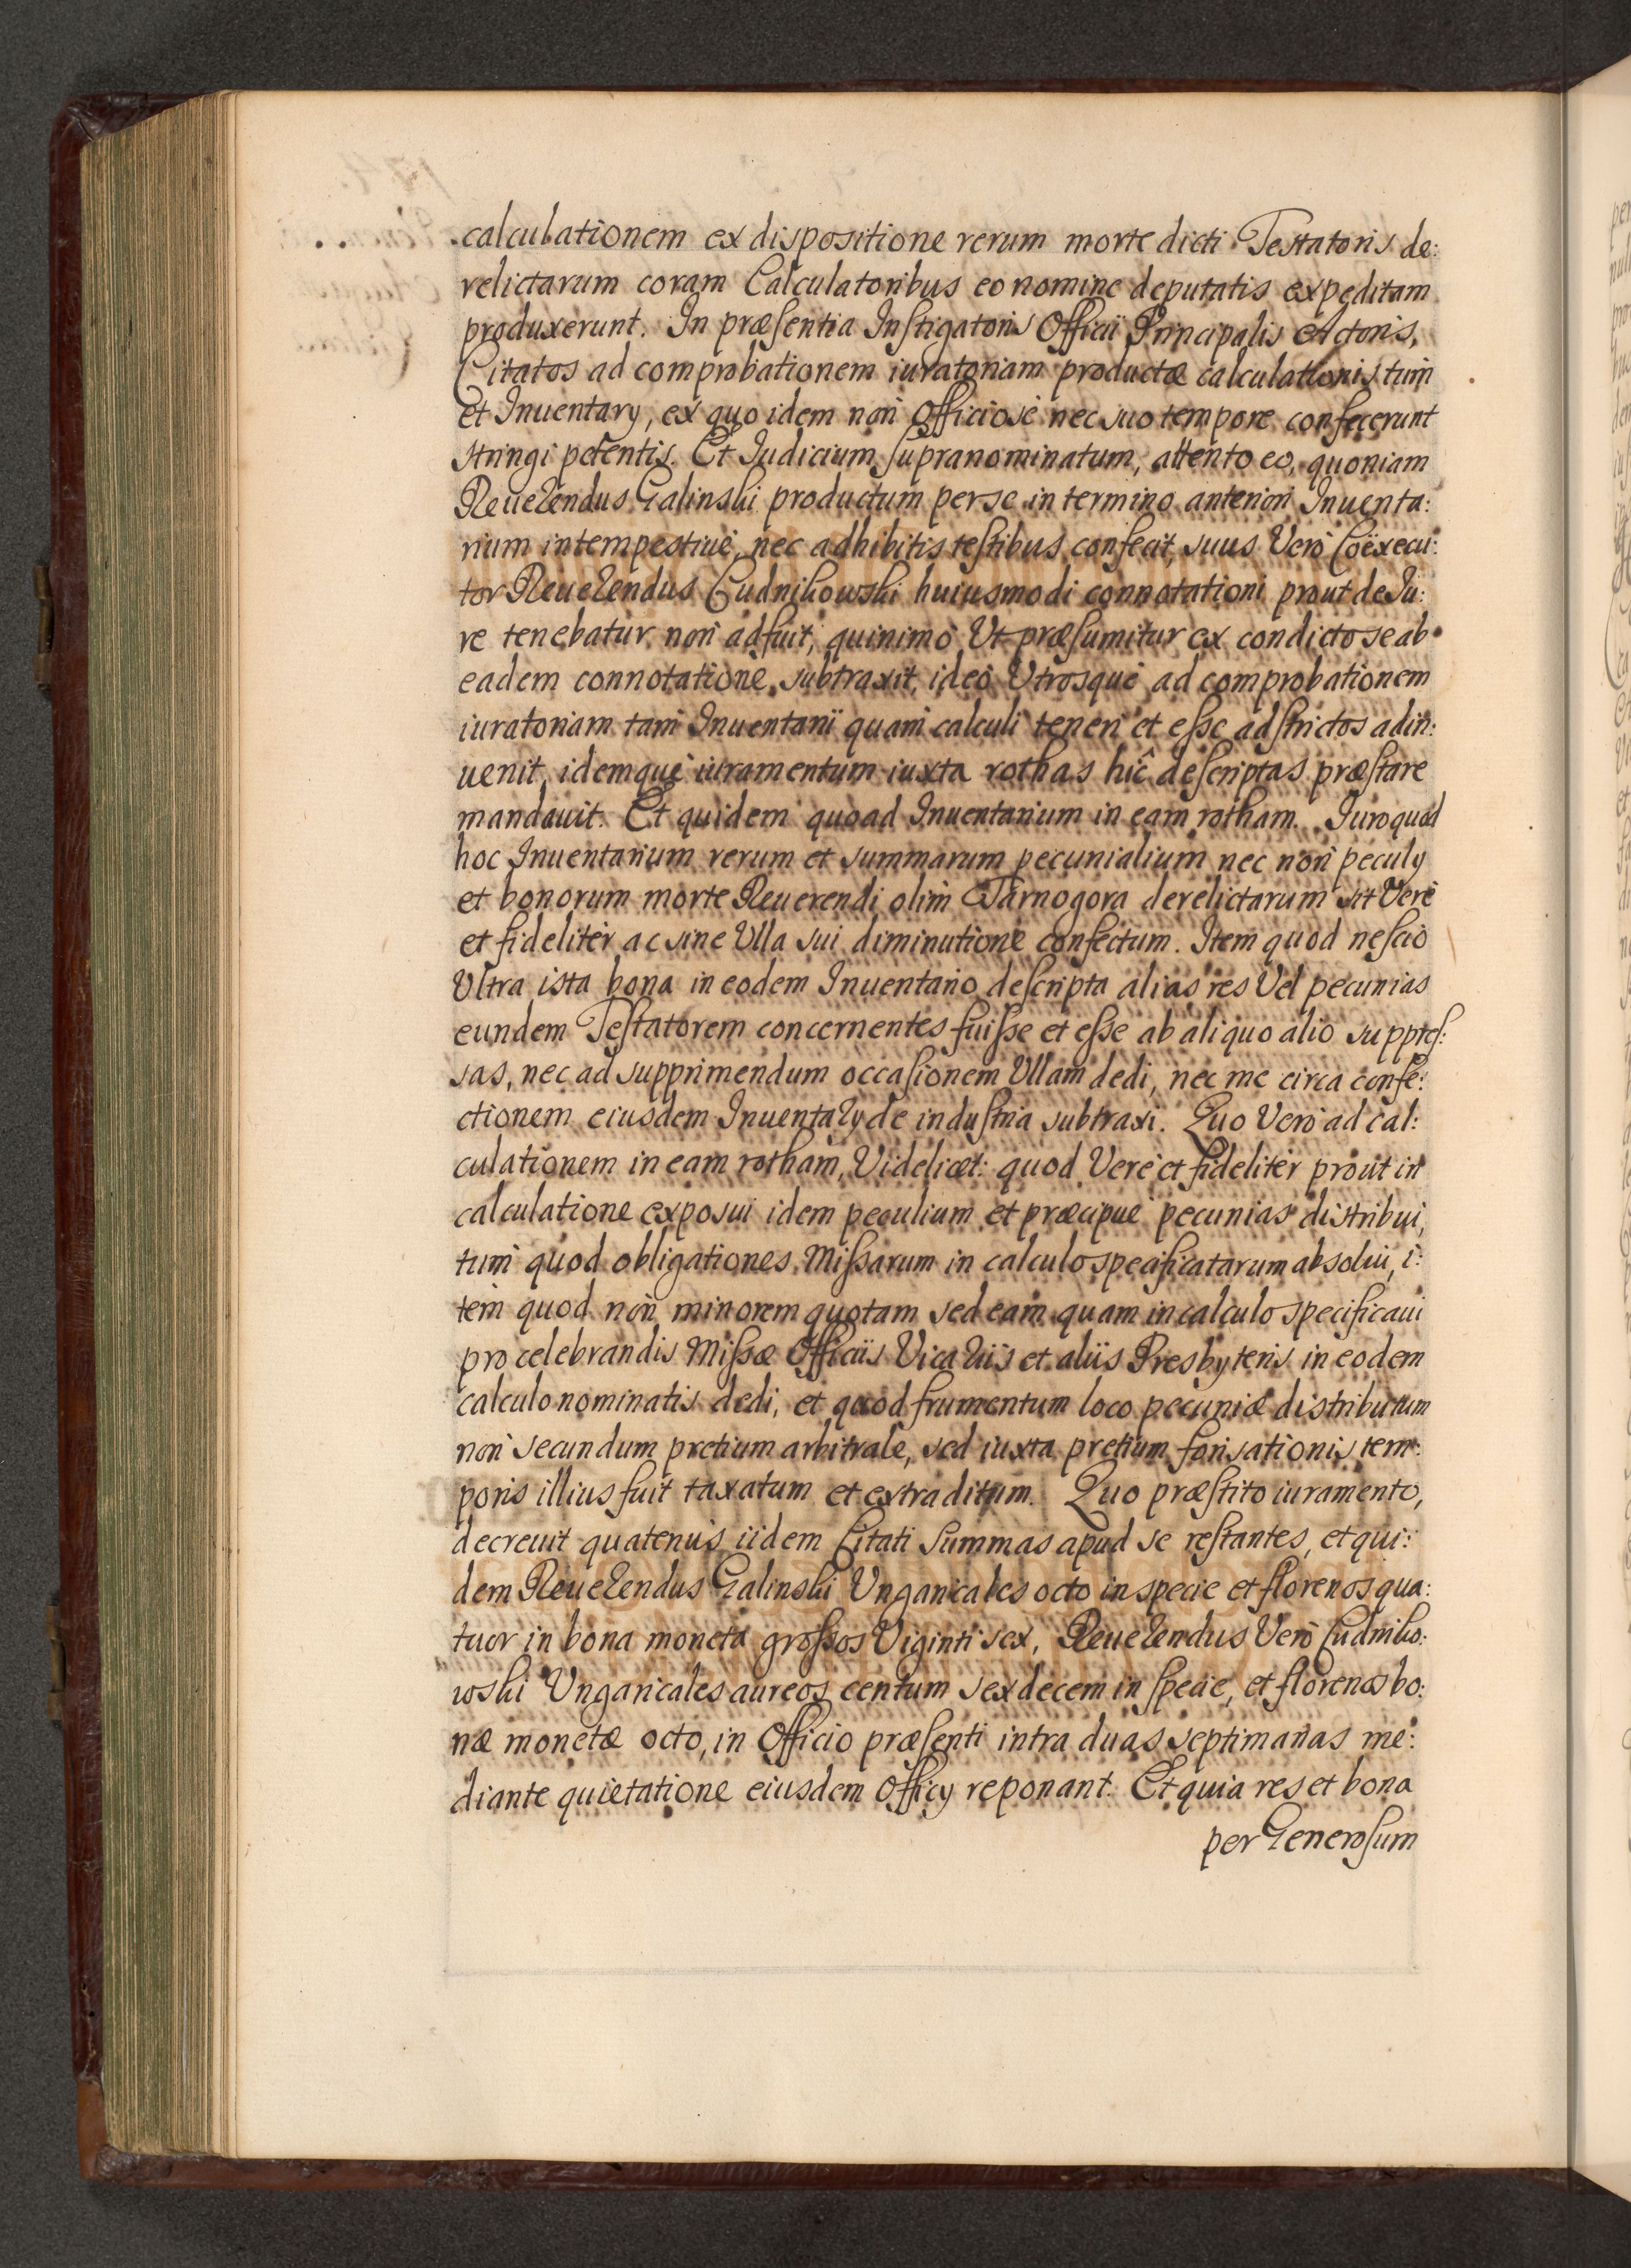 calculationem ex dispositione rerum morte dicti Testatoris de:
relictarum coram Calculatoribus eo nomine deputatis expeditam
produxerunt. In præsentia Instigatoris Officii Principalis Actoris,
Citatos ad comprobationem iuratoriam productæ calculationis tum
et Inuentary, ex quo idem non officiosè nec suo tempore confecerunt
stringi petentis. Et Iudicium supranominatum, attento eo, quoniam
Reuerendus Galinski productum per se in termino anteriori Inuenta:
rium intempestiuè, nec adhibitis testibus confecit, suus Verò Coëxecu:
tor Reuerendus Cudnikowski huiusmodi connotationi prout de Iu:
re tenebatur non adfuit, quinimò Ut præsumitur ex condicto se ab
eadem connotatione subtraxit, ideò Utrosque ad comprobationem
iuratoriam tam Inuentarii quam calculi teneri et esse adstrictos adin:
uenit, idemque iuramentum iuxta rothas hîc descriptas præstare
mandauit. Et quidem quoad Inuentarium in eam rotham. Iuro quod
hoc Inuentarium rerum et summarum pecunialium nec non peculy
et bonorum morte Reuerendi olim Tarnogora derelictarum sit Verè
et fideliter ac sine Ulla sui diminutione confectum. Item quod nescio
Ultra ista bona in eodem Inuentario descripta alias res Vel pecunias
eundem Testatorem concernentes fuisse et esse ab aliquo alio suppres:
sas, nec ad supprimendum occasionem Ullam dedi, nec me circa confe:
ctionem eiusdem Inuentary de industria subtraxi. Quo Verò ad cal:
culationem in eam rotham, Videlicet: quod Verè et fideliter prout in
calculatione exposui idem peculium et præcipuè pecunias distribui,
tum quod obligationes Missarum in calculo specificatarum absolui, i:
tem quod non minorem quotam sed eam quam in calculo specificaui
pro celebrandis Missæ Officiis Vicariis et aliis Presbyteris in eodem
calculo nominatis dedi, et quod frumentum loco pecuniæ distributum
non secundum pretium arbitrale, sed iuxta pretium forisationis tem:
poris illius fuit taxatum et extraditum. Quo præstito iuramento,
decreuit quatenus iidem Citati summas apud se restantes, et qui:
dem Reuerendus Galinski Ungaricales octo in specie et florenos qua:
tuor in bona moneta grossos Viginti sex, Reuerendus Verò Cudniko:
wski Ungaricales aureos centum sexdecem in specie, et florenos bo:
næ monetæ octo, in Officio præsenti intra duas septimanas me:
diante quietatione eiusdem Officy reponant. Et quia res et bona
per Generosum